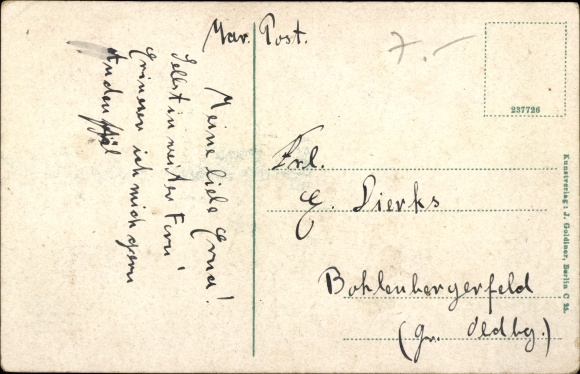 Mar. Post.
7.-
237726
Meine liebe Erna!
Selbst in weiter Fern'
Erinerer ich mich gern
An den
Frl.
E. Dierks
Bohlenbergerfeld
(Gr. Oldbg.)
Kunstverlag: J. Goldiner, Berlin C 25.